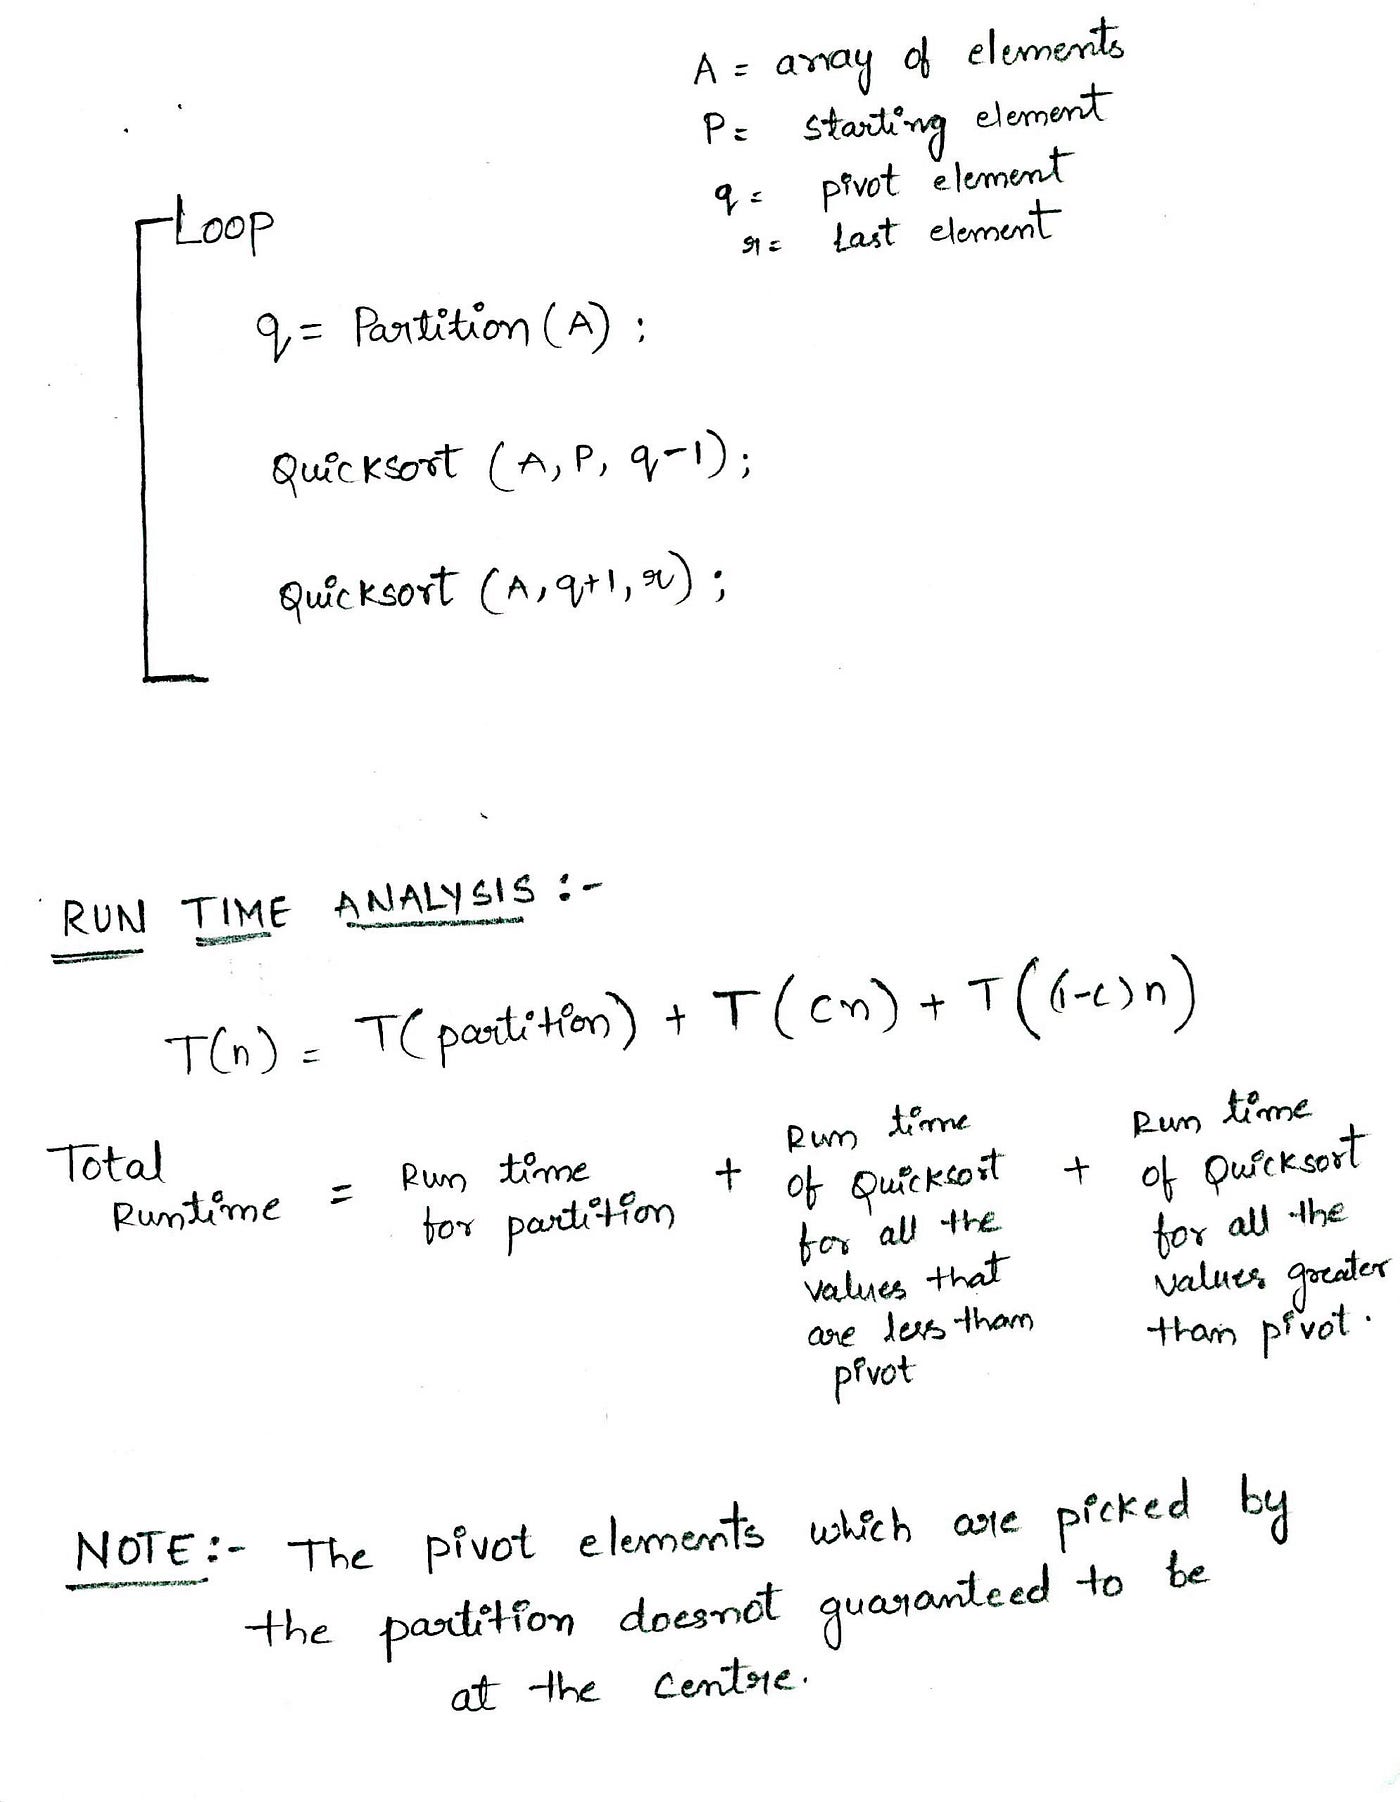 A = array of elements
P = starting element
q = pivot element
r = Last element
Loop
q = Partition (A) ;
Quicksort (A, P, q-1);
Quicksort (A, q+1, r) ;
RUN TIME ANALYSIS :-
T(n) = T(partition) + T(cn) + T((1-c)n)
Total
Runtime
=
Run time
for partition
+
Run time
of Quicksort
for all the
values that
are less than
pivot
+
Run time
of Quicksort
for all the
values greater
than pivot.
NOTE :- The pivot elements which are picked by
the partition doesnot guaranteed to be
at the centre.